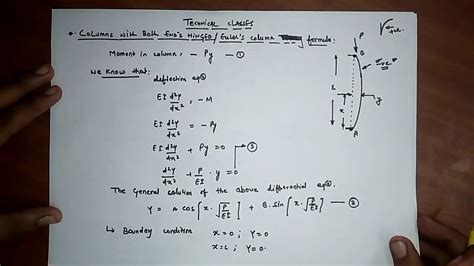 TECHNICAL CLASSES
* COLUMNS WITH BOTH END'S HINGED/ Euler's column formula:
Moment in column: - Py — ①
We know that:
deflection eqⁿ
EI d²y/dx² = -M
EI d²y/dx² = -Py
EI d²y/dx² + Py = 0 — ②
d²y/dx² + P/EI · y = 0
The General solution of the above differential eqⁿ.
Y = A cos[x·√P/EI] + B·sin[x·√P/EI] — ③
↳ Boundary condition x=0 ; Y=0
x=L ; Y=0.
P
B
L
x
y
A